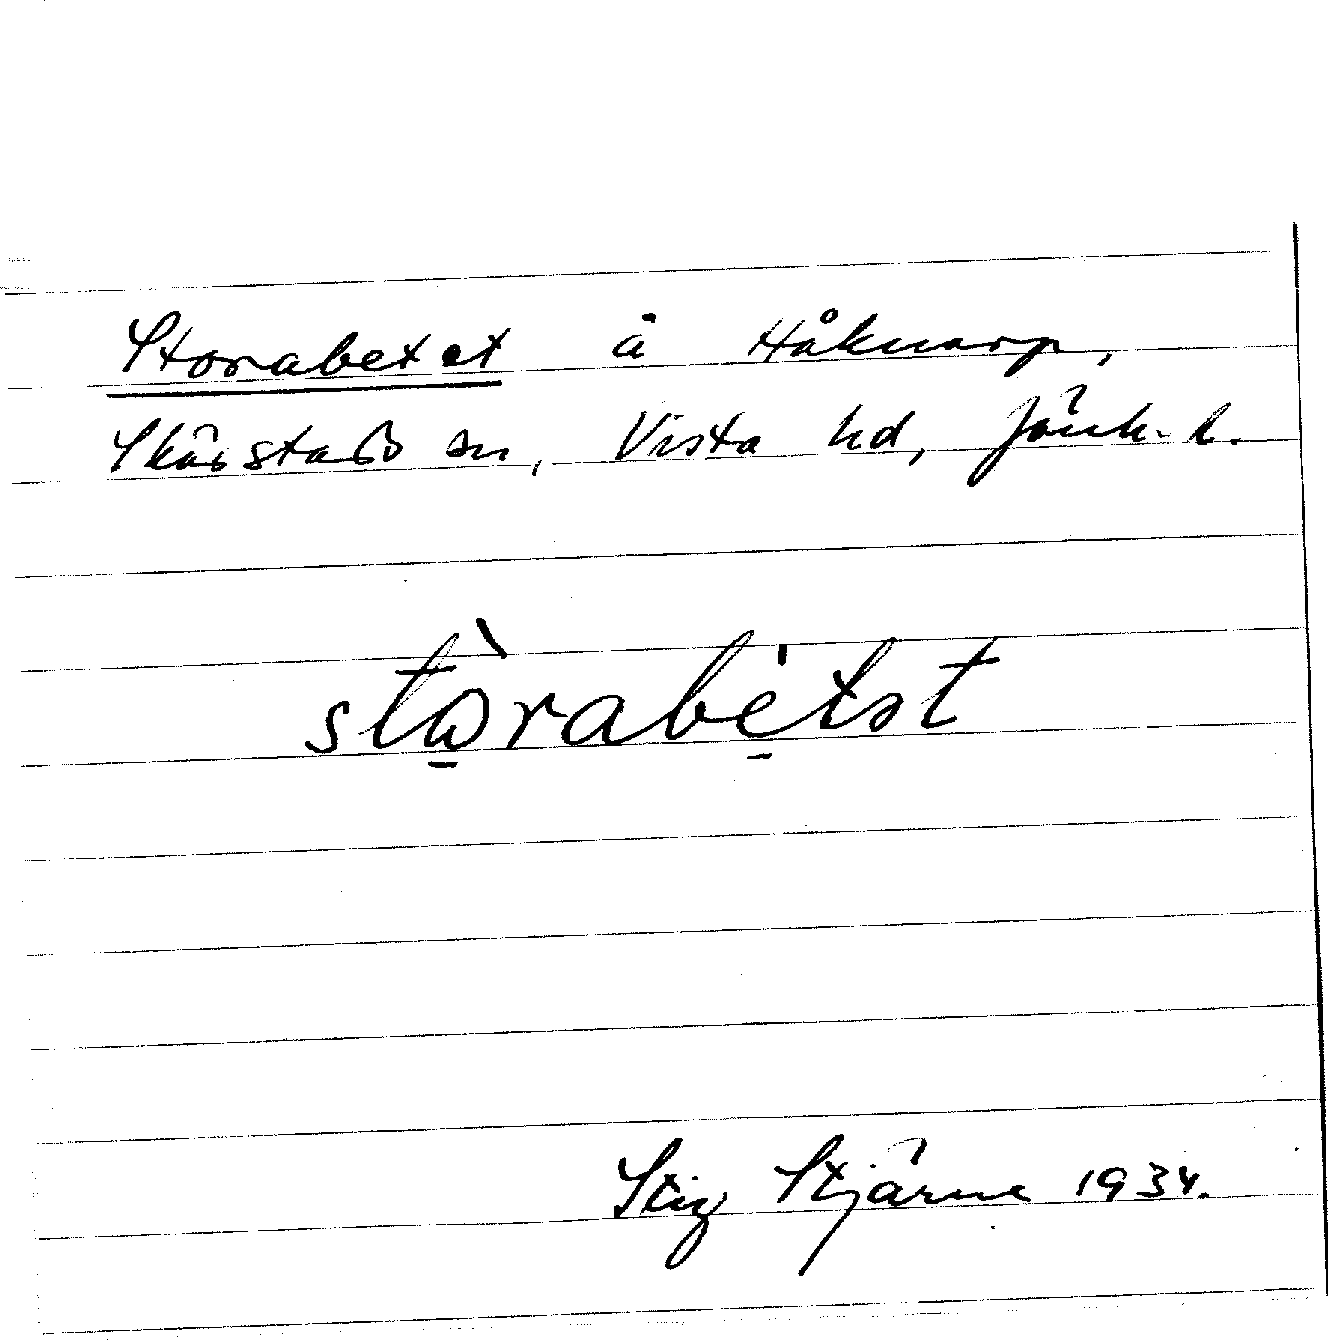 Storabetet å Håknarp,
Skärstads sn, Vista hd, Jönk. l.
stòrabétət
Stig Stjärne 1934.